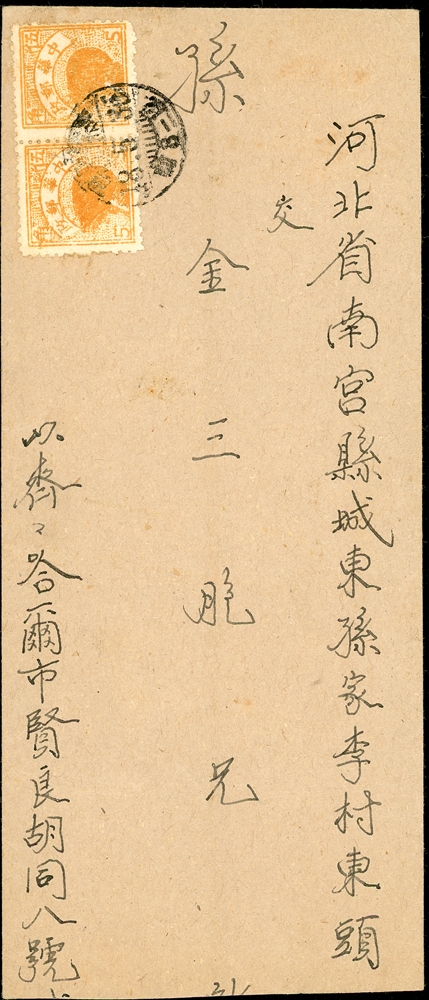 河北省南宮縣城東孫家李村東頭
交
孫
金三胞兄
齊々哈爾市賢良胡同八號
中華郵政
5
中華郵政
5